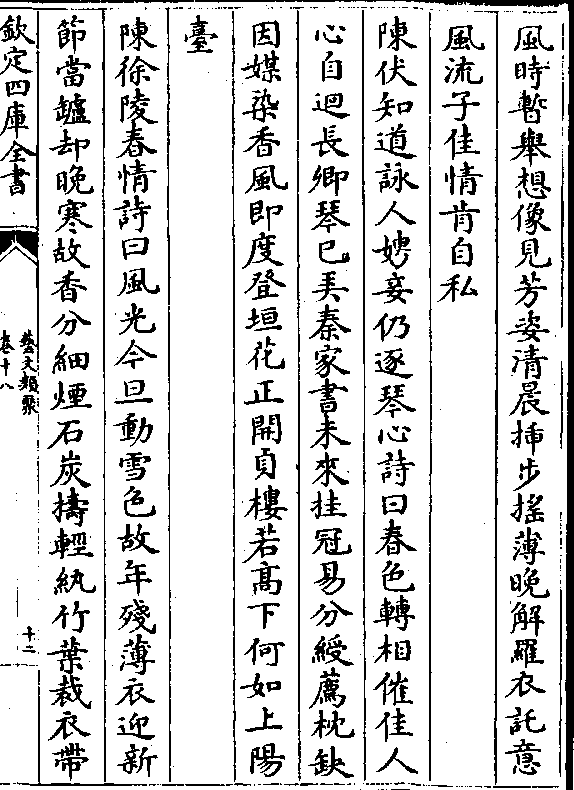 風時暫舉想像見芳姿清晨揷步搖薄晚解羅衣託意
風流子佳情肯自私
陳伏知道詠人娉妾仍逐琴心詩曰春色轉相催佳人
心自迴長卿琴已弄秦家書未來挂冠易分綬薦枕缺
因媒染香風即度登垣花正開貞樓若髙下何如上陽
臺
陳徐陵春情詩曰風光今旦動雪色故年殘薄衣迎新
節當罏却晚寒故香分細煙石炭擣輕紈竹葉裁衣帶
欽定四庫全書
藝文類聚
卷十八
十二